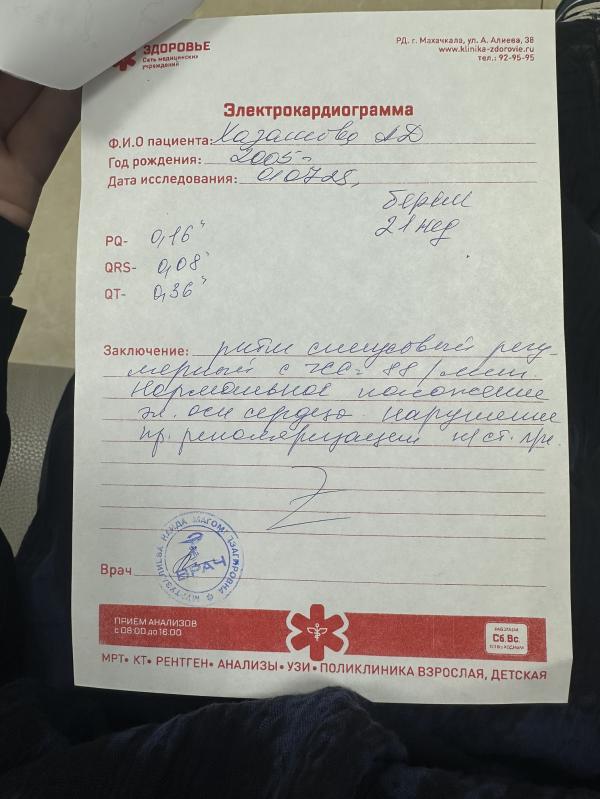 ЗДОРОВЬЕ
Сеть медицинских
учреждений
РД, г. Махачкала, ул. А. Алиева, 38
www.klinika-zdorovie.ru
тел.: 92-95-95
Электрокардиограмма
Ф.И.О пациента:
Год рождения: 2005
Дата исследования:
21 нед
PQ- 0,16"
QRS- 0,08"
QT- 0,36"
Заключение: ритм синусовый регу-
лярный с чсс 88/мин.
Нормальное положение
эл. оси сердца. Нарушение
пр. реполяризации
Врач
ВРАЧ
ПРИЕМ АНАЛИЗОВ
с 08:00 до 16:00
Сб.Вс.
МРТ• КТ• РЕНТГЕН• АНАЛИЗЫ• УЗИ• ПОЛИКЛИНИКА ВЗРОСЛАЯ, ДЕТСКАЯ